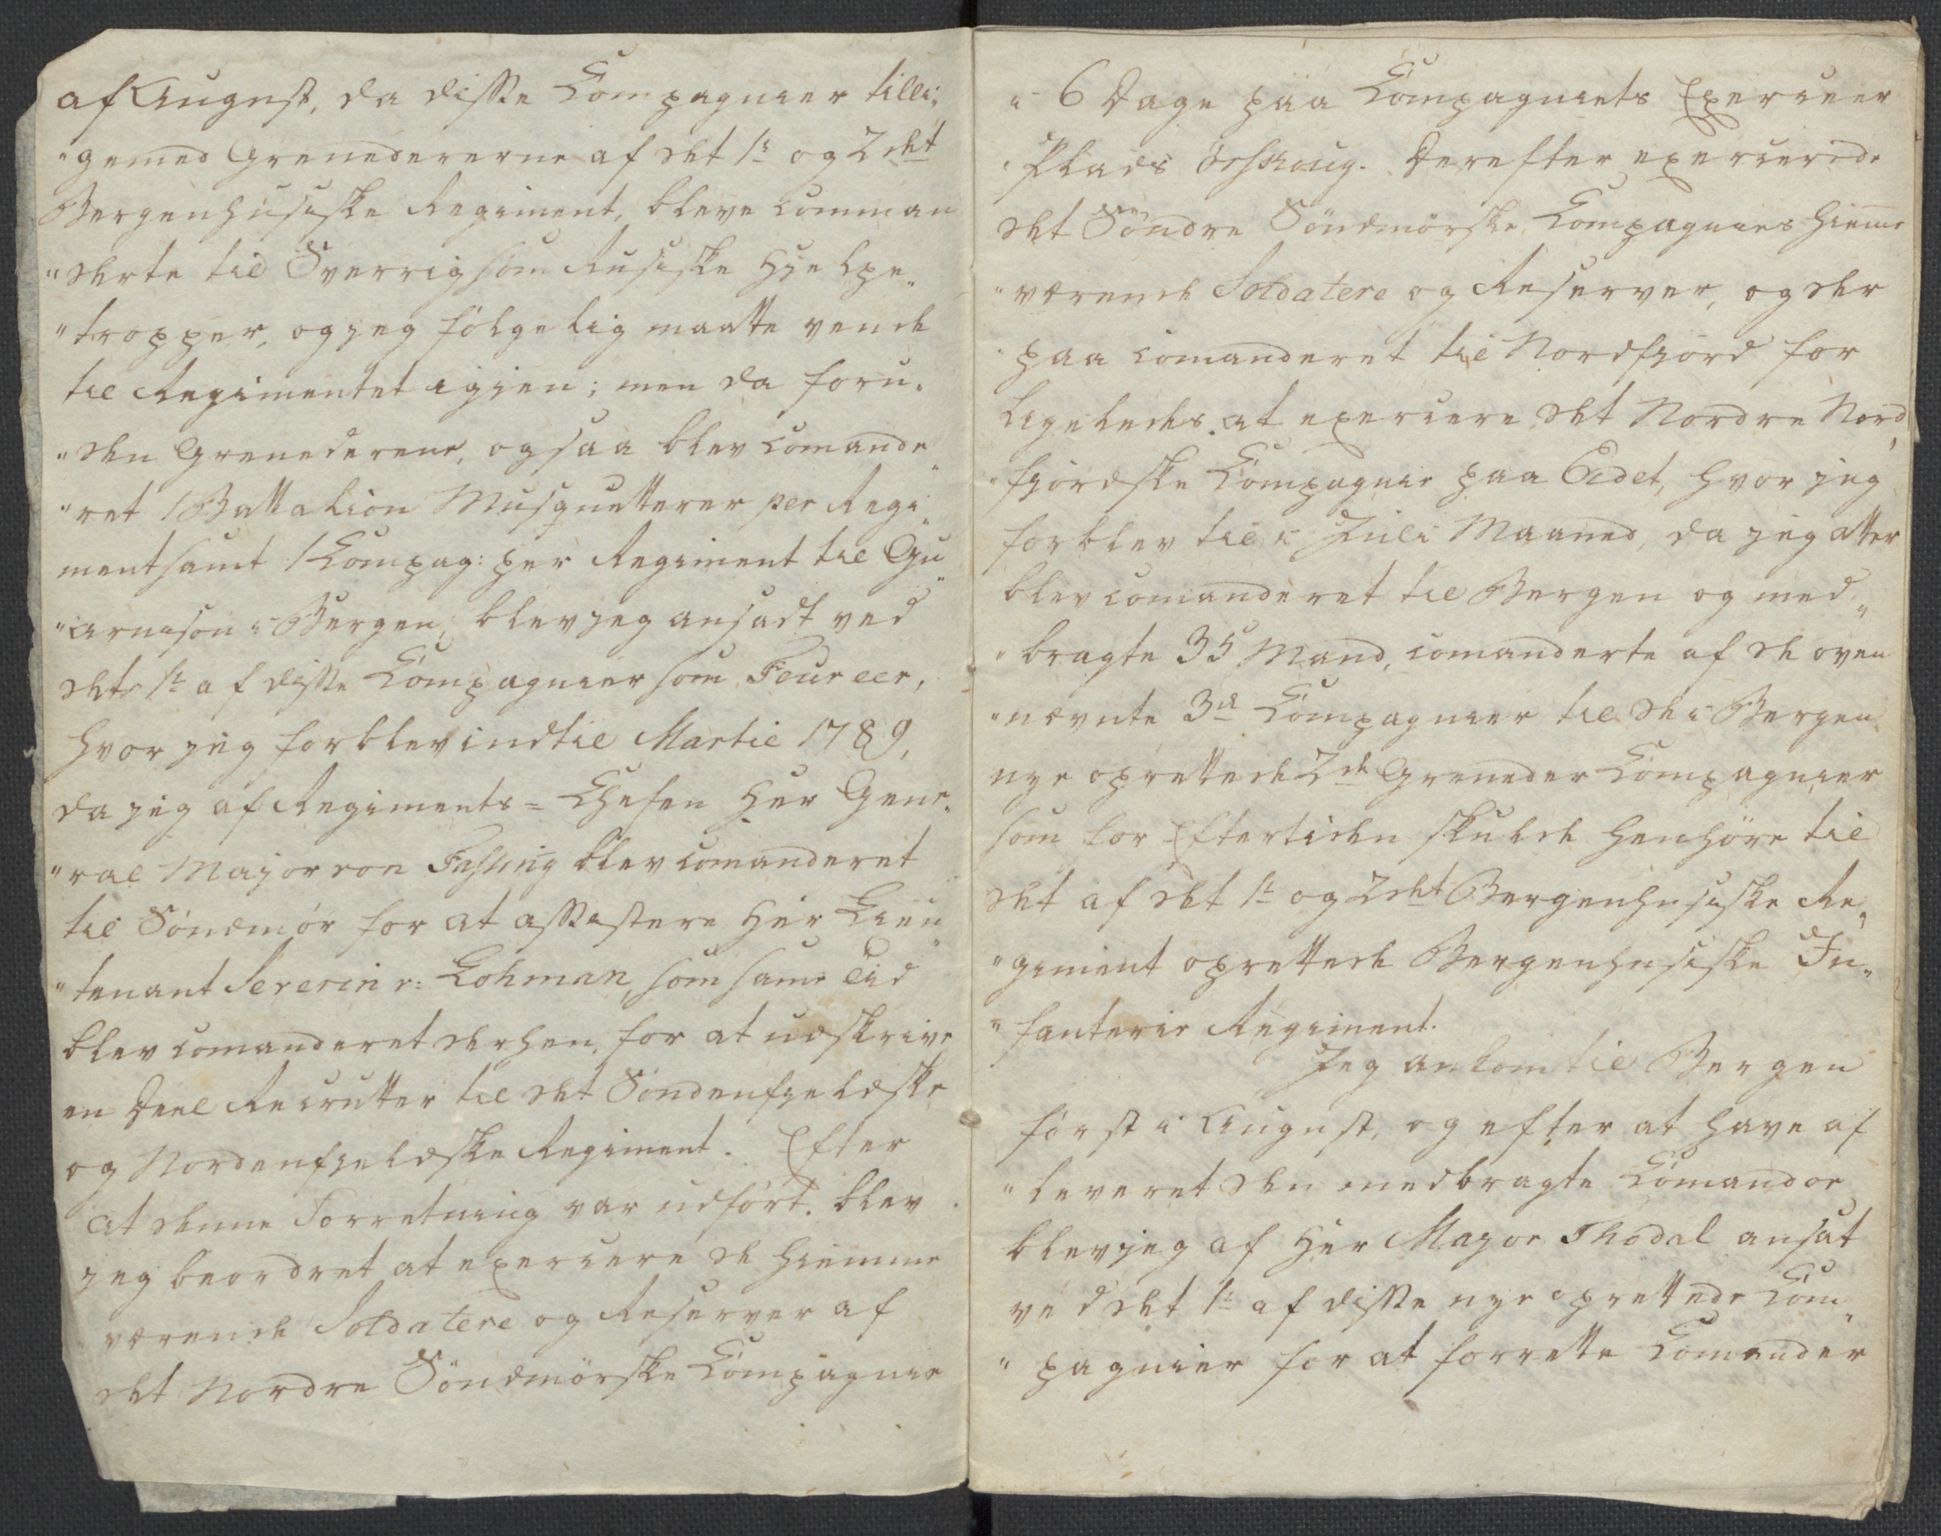 af August, da disse Compagnier tilli„
„gemed Grenedererne af det 1ste og 2det
Bergenhusiske Regiment, bleve comman
„derte til Sverrig som Rusiske Hielpe„
„tropper, og jeg fölgelig maatte vende
til Regimentet igien; men da foru„
„den Grenederene, ogsaa blev comande„
„ret 1 Battalion Musquetterer per Regi„
ment samt 1 Compag: per Regiment til Gu„
„arnison i Bergen; blev jeg ansadt ved
det 1ste af disse Compagnier som Feureer,
hvor jeg forblev indtil Martii 1789,
da jeg af Regiments=Chefen Her Gene„
„ral Major von Fasting blev comanderet
til Söndmör for at assistere Her Lieu„
„tenant Severin v: Lohman, som same Tid
blev comanderet derhen, for at udskrive
en Deel Recrutter til det Söndenfieldske
og Nordenfieldske Regiment. Efter
at denne Forretning var udfört, blev
jeg beordret at exercere de hiemme
værende Soldatere og Reserver af
det Nordre Söndmörske Compagnie
i 6 Dage paa Compagniets Exerceer
Plads Örschoug. Derefter exercerede
det Söndre Söndmörske Compagnies hieme
„værende Soldatere og Reserver, og der
paa comanderet til Nordfjord for
ligeledes at exercere det Nordre Nord„
„fjordske Compagnie paa Eidet, hvor jeg
forblev til i Julii Maaned, da jeg atter
blev comanderet til Bergen og med„
„bragte 35 Mand, comanderte af de oven
„nævnte 3de Compagnier til de i Bergen
nye oprettede 2de Greneder Compagnier
som for Eftertiden skulde henhöre til
det af det 1ste og 2det Bergenhusiske Re„
„giment oprettede Bergenhusiske In„
„fanterie Regiment.
Jeg ankom til Bergen
först i August, og efter at have af
„leveret den medbragte Comando
blev jeg af Her Major Thodal ansat
ved det 1ste af disse nye oprettede Com„
„pagnier for at forrette Comander